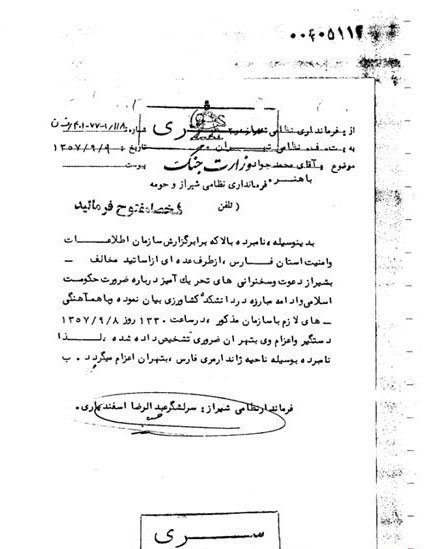 ۰۰۴۰۵۱۱۲
سری
از : فرمانداری نظامی شیراز شماره : ۴۰۱-۷۷-۱/۱۱۸
به : نظامی تهران تاریخ : ۱۳۵۷/۹/۹
وزارت جنگ
موضوع : آقای محمد جواد باهنر پیوست
فرمانداری نظامی شیراز و حومه
(تلفن ) شخصا مفتوح فرمائید
بدینوسیله ، نامبرده بالا که برابر گزارش سازمان اطلاعات
وامنیت استان فارس ، ازطرف عده ای ازاساتید مخالف -
بشیراز دعوت وسخنرانی های تحریک آمیز درباره ضرورت حکومت
اسلامی وادامه مبارزه در دانشکده کشاورزی بیان نموده وباهماهنگی
- های لازم با سازمان مذکور ، در ساعت ۱۳۳۰ روز ۱۳۵۷/۹/۸
دستگیر واعزام وی بتهران ضروری تشخیص داده شده ، لذا
نامبرده بوسیله ناحیه ژاندارمری فارس ، بتهران اعزام میگردد . ب
فرماندار نظامی شیراز : سرلشگر عبدالرضا اسفندیاری .
سری